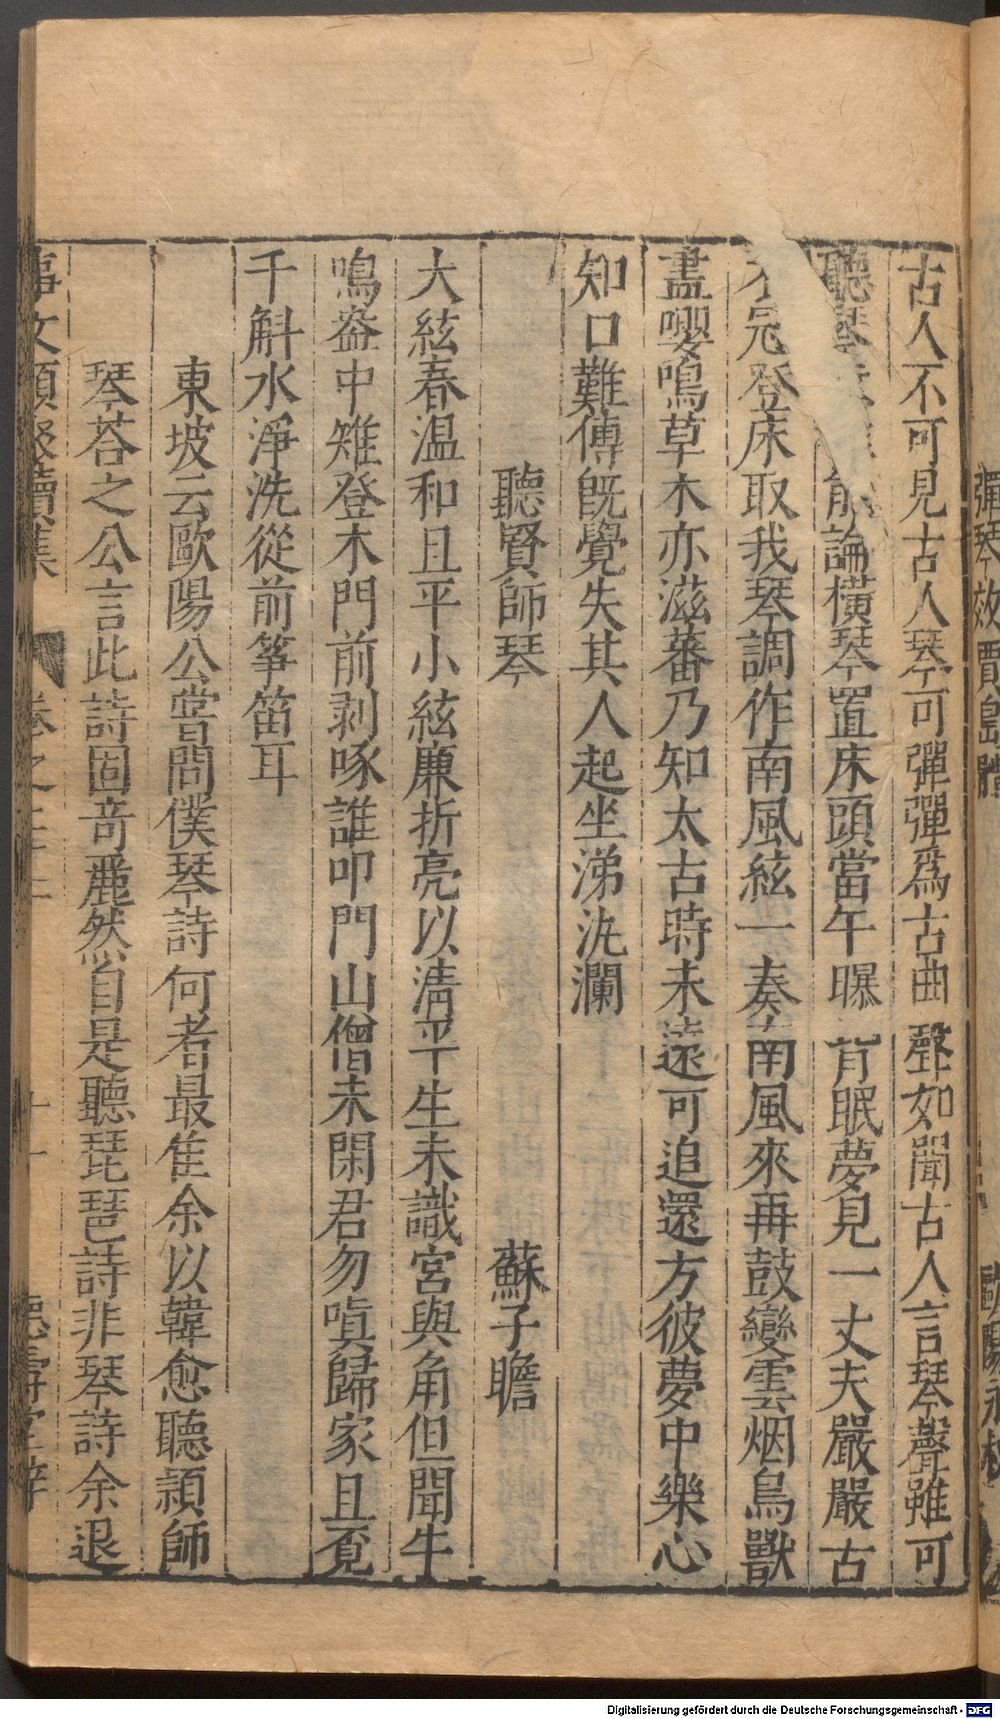 彈琴效賈島體　歐陽永叔
古人不可見古人琴可彈彈爲古曲聲如聞古人言琴聲雖可
聽琴　能論橫琴置床頭當午曝背眠夢見一丈夫嚴嚴古
冠登床取我琴調作南風絃一奏南風來再鼓變雲烟鳥獸
盡嚶鳴草木亦滋蕃乃知太古時未遠可追還方彼夢中樂心
知口難傳旣覺失其人起坐涕汍瀾
聽賢師琴　蘇子瞻
大絃春温和且平小絃廉折亮以清平生未識宮與角但聞牛
鳴盎中雉登木門前剥啄誰叩門山僧未閑君勿嗔歸家且覔
千斛水淨洗從前筝笛耳
東坡云歐陽公嘗問僕琴詩何者最隹余以韓愈聽頴師
琴荅之公言此詩固竒麗然自是聽琵琶詩非琴詩余退
事文類聚續集　卷之二十二　十一　德壽堂梓
Digitalisierung gefördert durch die Deutsche Forschungsgemeinschaft - DFG